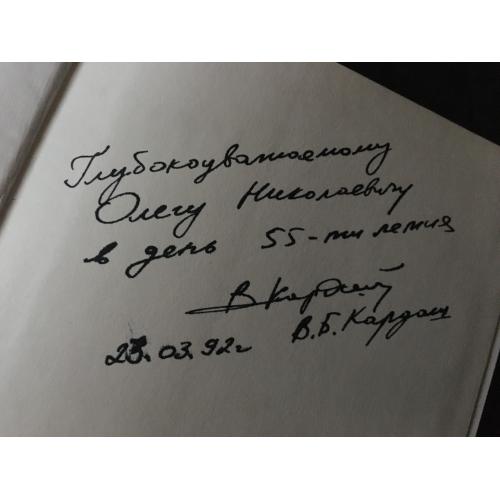 Глубокоуважаемому
Олегу Николаевичу
в день 55-ти летия
В Кардаш
В.Б. Кардаш
23.03.92г